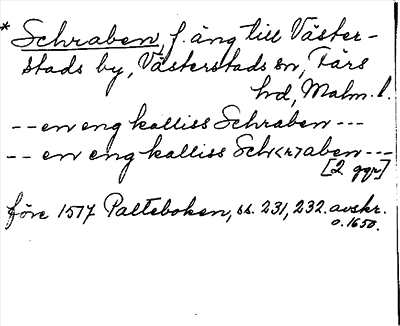 * Schraben, f. äng till Väster-
stads by, Västerstads sn, Färs
hd, Malm. l.
-- en eng kalliss Schraben ---
-- en eng kalliss Sch<r>aben ---
[2 ggr]
före 1517 Palteboken, ss. 231, 232. avskr.
o. 1650.